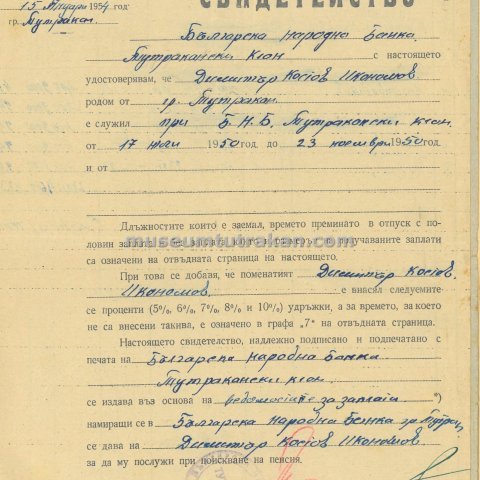 15 Януари 1954 год.
гр. Тутракан
СВИДЕТЕЛСТВО
Българска Народна Банка
Тутракански клон с настоящето
удостоверявам, че Димитър Костов Икономов
родом от гр. Тутракан
е служил при Б.Н.Б. Тутракански клон
от 17 юли 1950 год. до 23 ноември 1950 год.
и от
Длъжностите които е заемал, времето преминато в отпуск с по-
ловин заплата
са означени на отвъдната страница на настоящето.
При това се добавя, че поменатият Димитър Костов
Икономов, е внасял следуемите
се проценти (5%, 6%, 7%, 8% и 10%) удръжки, а за времето, за което
не са внесени такива, е означено в графа „7“ на отвъдната страница.
Настоящето свидетелство, надлежно подписано и подпечатано с
печата на Българска народна банка
Тутракански клон
се издава въз основа на ведомостите за заплати *)
намиращи се в Българска народна банка гр. Тутракан
се дава на Димитър Костов Икономов
за да му послужи при поискване на пенсия.
museumtutrakan.com